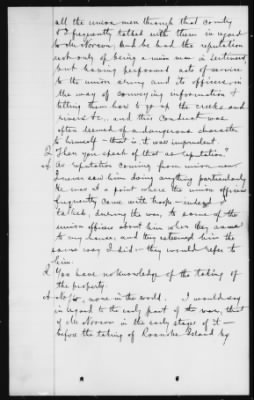 all the union men through that county
& I frequently talked with them in regard
to Mr Norcom. And he had the reputation
not only of being a union man in sentiment,
but having performed acts of service
to the union army and its officers, in
the way of conveying information &
telling them how to go up the creeks and
rivers &c., and this conduct was
often deemed of a dangerous character
to himself - that is, it was imprudent.
Q Then you speak of that as reputation?
A As reputation coming from union men
I never saw him doing anything particularly
He was at a point where the union officers
frequently came with troops - indeed I
talked, during the war, to some of the
union officers about him when they came
to my house, and they returned him the
same way I did - they would refer to
him.
Q You have no knowledge of the taking of
the property.
A No Sir, none in the world. I would say
in regard to the early part of the war, that
of Mr Norcom in the early stages of it -
before the taking of Roanoke Island by